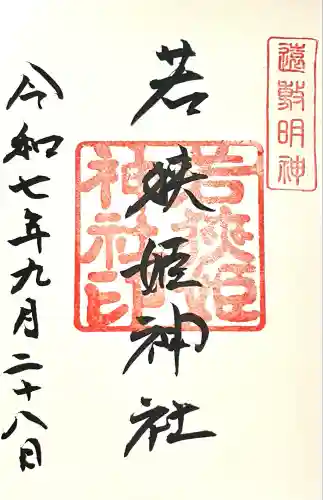 遠敷明神
若狹姫神社
若狹姫神社印
令和七年九月二十八日